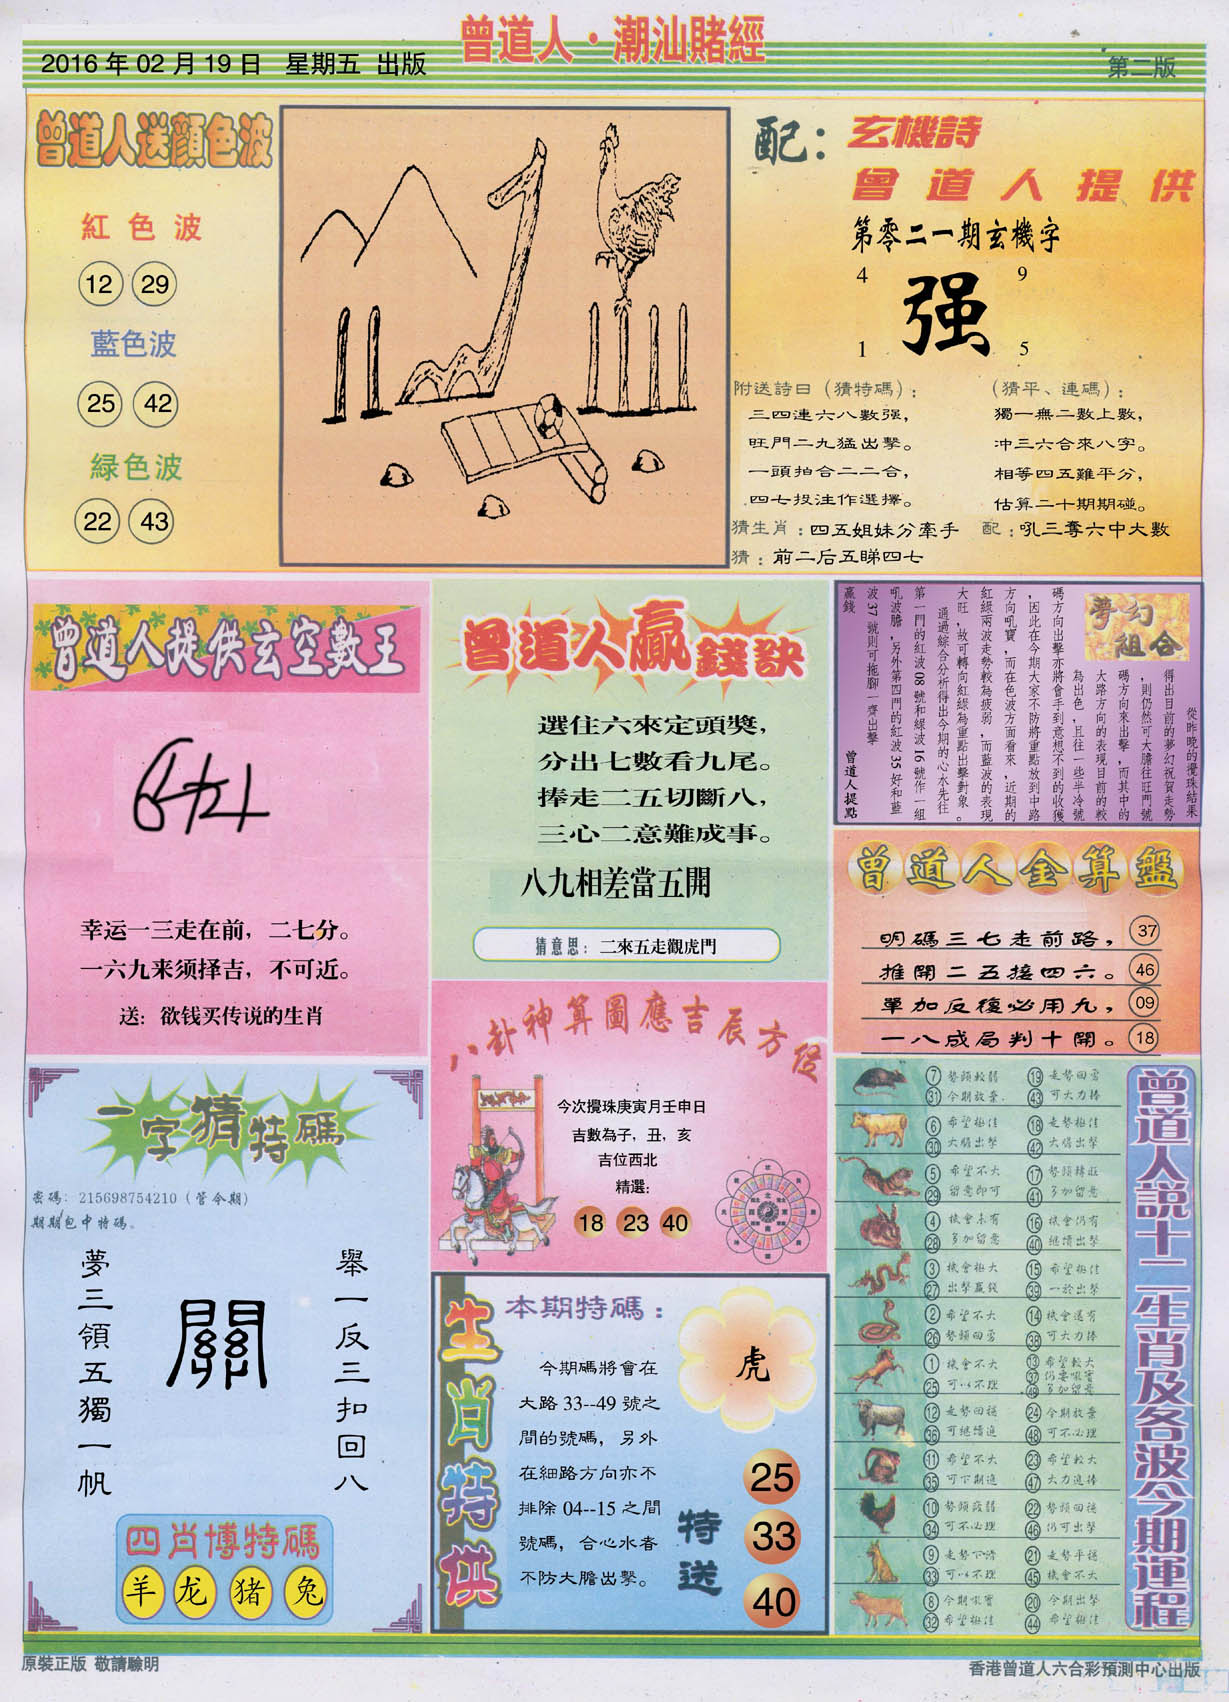 2016 年 02 月 19 日 星期五 出版
曾道人·潮汕賭經
第二版
曾道人送顏色波
紅色波
12 29
藍色波
25 42
緑色波
22 43
配：玄機詩
曾道人提供
第零二一期玄機字
4 9
强
1 5
附送詩曰（猜特碼）：
三四連六八數强，
旺門二九猛出擊。
一頭拍合二二合，
四七投注作選擇。
（猜平、連碼）：
獨一無二數上數，
冲三六合來八字。
相等四五難平分，
估算二十期期碰。
猜生肖：四五姐妹分牽手
配：吼三奪六中大數
猜：前二后五睇四七
曾道人提供玄空數王
幸运一三走在前，二七分。
一六九来须择吉，不可近。
送：欲钱买传说的生肖
曾道人贏錢訣
選住六來定頭獎，
分出七數看九尾。
捧走二五切斷八，
三心二意難成事。
八九相差當五開
猜意思：二來五走觀虎門
夢幻組合
從昨晚的攪珠結果
得出目前的夢幻祝賀走勢
，則仍然可大膽往旺門號
碼方向來出擊，而其中的
大路方向的表現目前的較
為出色，且往一些半冷號
碼方向出擊亦將會手到意想不到的收獲
，因此在今期大家不防將重點放到中路
方向吼寶，而在色波方面看來，近期的
紅綠兩波走勢較為疲弱，而藍波的表現
大旺，故可轉向紅綠為重點出擊對象。
通過綜合分析得出今期的心水先往
第一門的紅波 08 號和緑波 16 號作一組
吼波膽，另外第四門的紅波 35 好和藍
波 37 號則可拖腳一齊出擊
贏錢
曾道人提點
曾道人金算盤
明碼三七走前路， 37
推開二五接四六。 46
單加反復必用九， 09
一八成局判十開。 18
一字猜特碼
密碼：215698754210（管今期）
期期包中特碼。
舉一反三扣回八
關
夢三領五獨一帆
四肖博特碼
羊 龙 猪 兔
八卦神算圖應吉辰方位
今次攪珠庚寅月壬申日
吉數為子，丑，亥
吉位西北
精選：
18 23 40
生肖特供
本期特碼：
虎
今期碼將會在
大路 33--49 號之
間的號碼，另外
在細路方向亦不
排除 04--15 之間
號碼，合心水者
不防大膽出擊。
特送
25
33
40
曾道人説十二生肖及各波今期運程
7 勢頭較弱 19 走勢回勇
31 今期放棄 43 可大力捧
6 希望極佳 18 走勢極佳
30 大膽出擊 42 大膽出擊
5 希望不大 17 勢頭轉旺
29 留意即可 41 多加留意
4 機會未有 16 機會仍有
28 多加留意 40 繼續出擊
3 機會極大 15 希望極佳
27 出擊贏錢 39 一於出擊
2 希望不大 14 機會還有
26 勢頭回勇 38 可大力捧
1 機會不大 13 希望較大
37 仍要吼實
25 可以不理 49 多加留意
12 走勢回穩 24 今期放棄
36 可繼續追 48 可不必理
11 希望不大 23 希望較大
35 可下期追 47 大力追捧
10 勢頭疲弱 22 勢頭回穩
34 可不必理 46 仍可出擊
9 走勢下滑 21 走勢平穩
33 可以不理 45 機會不大
8 今期吼實 20 今期出擊
32 希望極佳 44 希望極佳
原裝正版 敬請驗明
香港曾道人六合彩預測中心出版